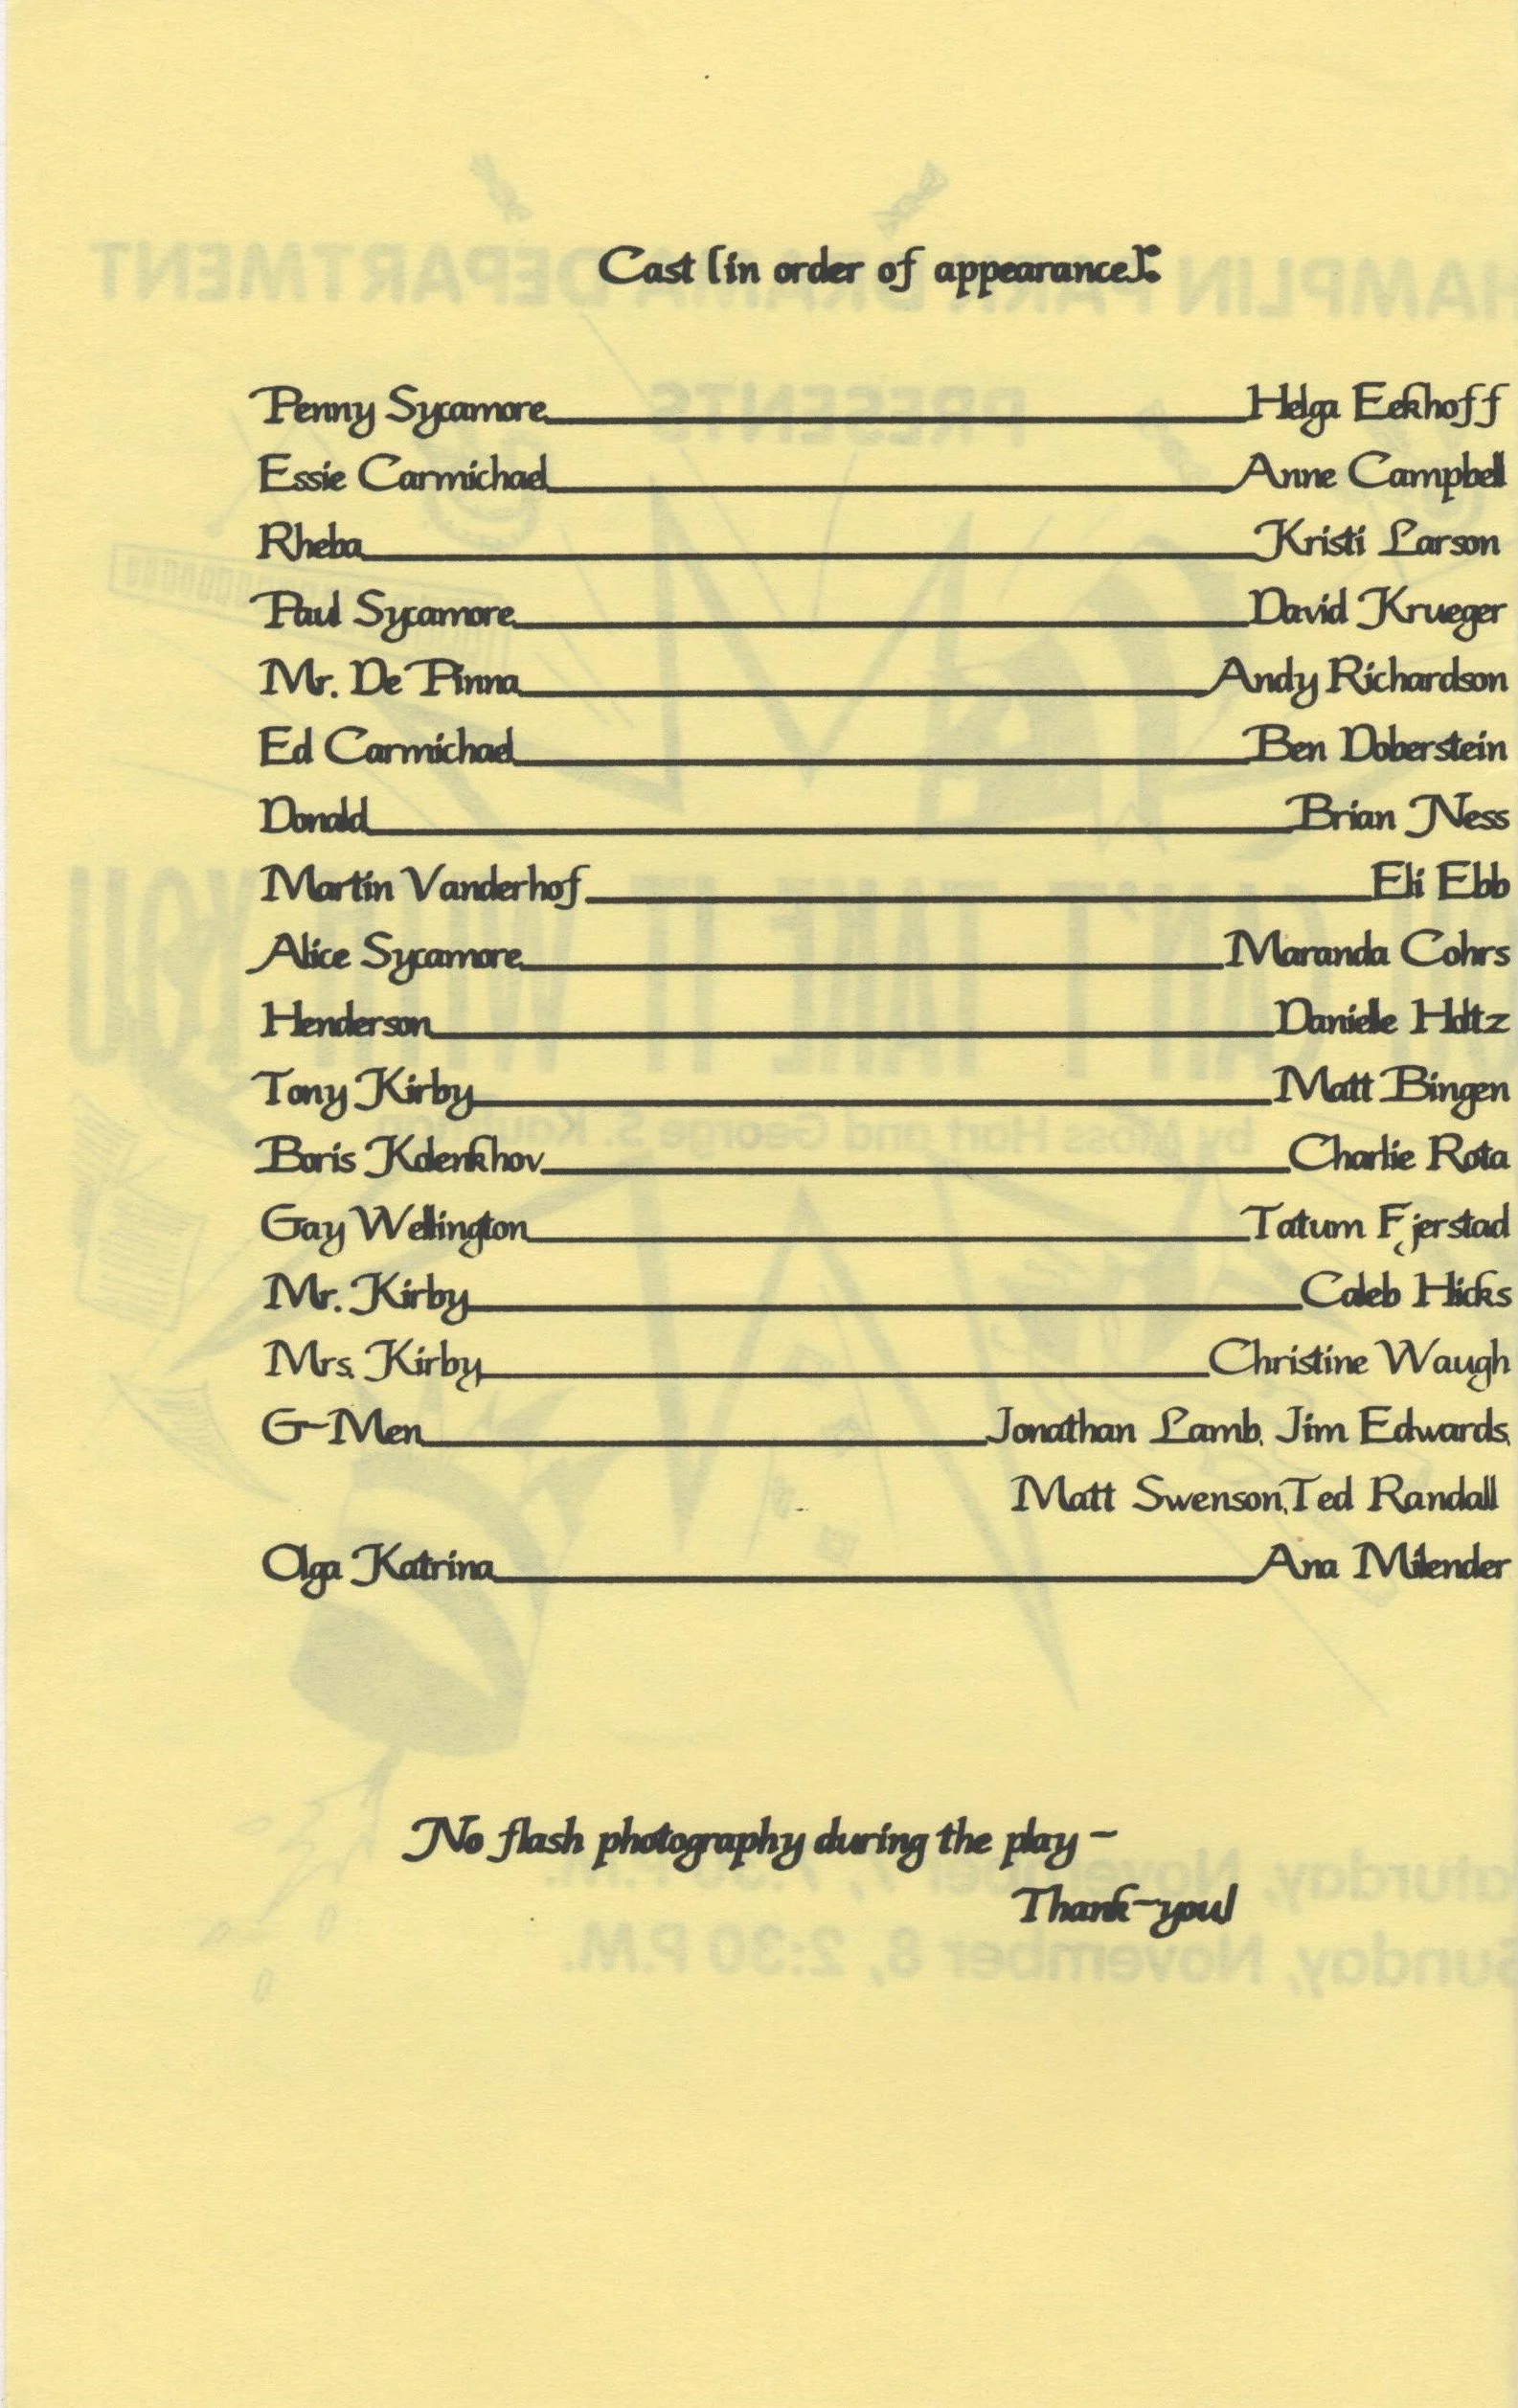 Cast [in order of appearance]:
Penny Sycamore Helga Eekhoff
Essie Carmichael Anne Campbell
Rheba Kristi Larson
Paul Sycamore David Krueger
Mr. De Pinna Andy Richardson
Ed Carmichael Ben Doberstein
Donald Brian Ness
Martin Vanderhof Eli Ebb
Alice Sycamore Maranda Cohrs
Henderson Danielle Holtz
Tony Kirby Matt Bingen
Boris Kolenkhov Charlie Rota
Gay Wellington Tatum Fjerstad
Mr. Kirby Caleb Hicks
Mrs. Kirby Christine Waugh
G-Men Jonathan Lamb, Jim Edwards,
Matt Swenson, Ted Randall
Olga Katrina Ana Milender
No flash photography during the play -
Thank-you!